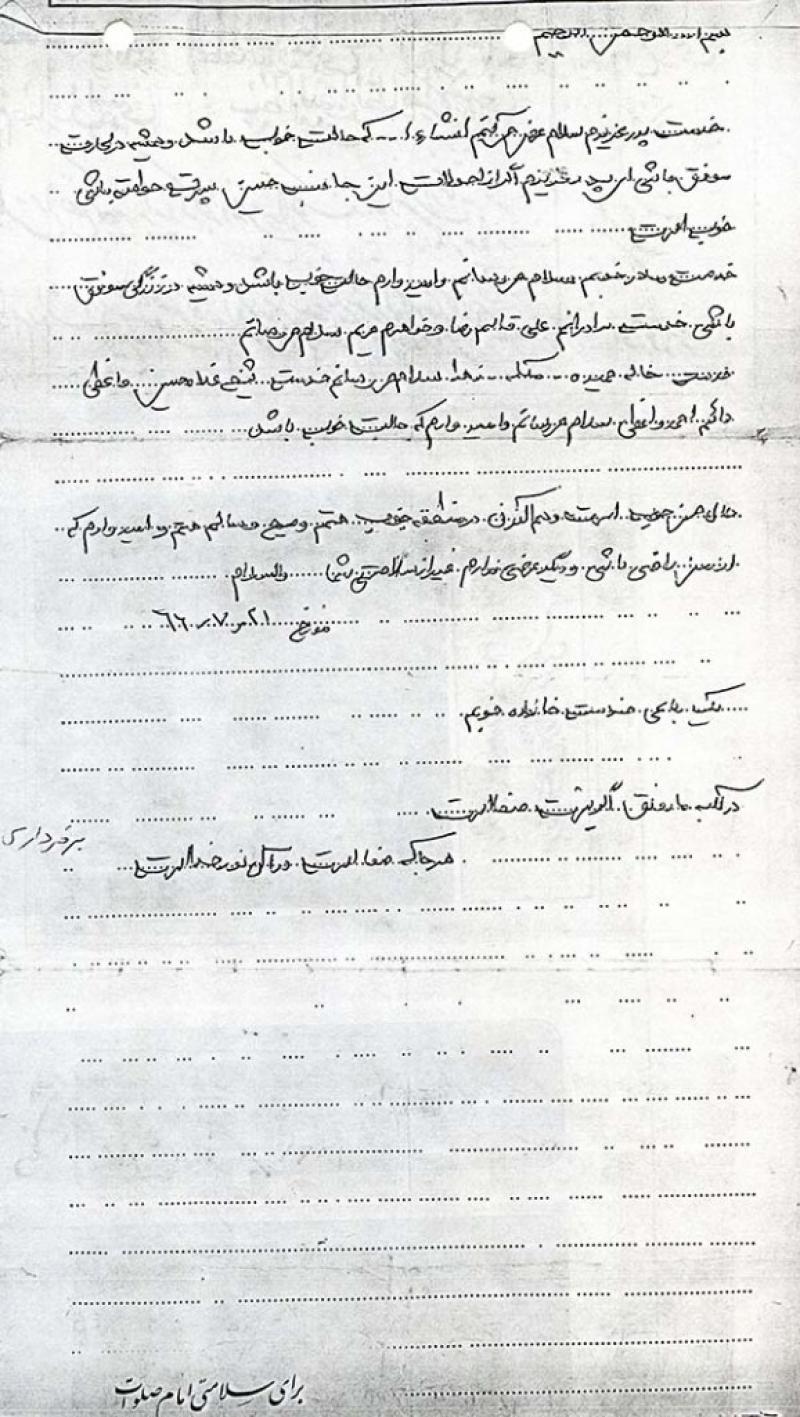 بسم الله الرحمن الرحیم
خدمت پدر عزیزم سلام عرض می کنم انشاء ا... که حالت خوب باشد و همیشه در کارت
موفق باشی ای پدر عزیزم اگر از احوالات این جانب حسین پسرت خواسته باشی
خوب است
خدمت مادر خوبم سلام می رسانم و امیدوارم حالت خوب باشد و همیشه در زندگی موفق
باشی خدمت برادرانم علی قاسم رضا و خواهرم مریم سلام می رسانم
خدمت خاله حمیده ملکه زهرا سلام می رسانم خدمت شیخ غلامحسین
دائیم احمد و سلام می رسانم و امید وارم که حالت خوب باشد
حال من خوب است و هم اکنون در منطقه جنوب هستم و صحیح و سالم هستم و امیدوارم که
از من راضی باشی و دیگر عرضی ندارم غیر از سلامتی شما والسلام
مورخ ۲۱ ر ۷ ر ۶۶
خدمت خانواده خوبم
در کلبه ما رونق اگر نیست صفا است
هر جا که صفا است در آن نور خدا است
برخورداری
برای سلامتی امام صلوات